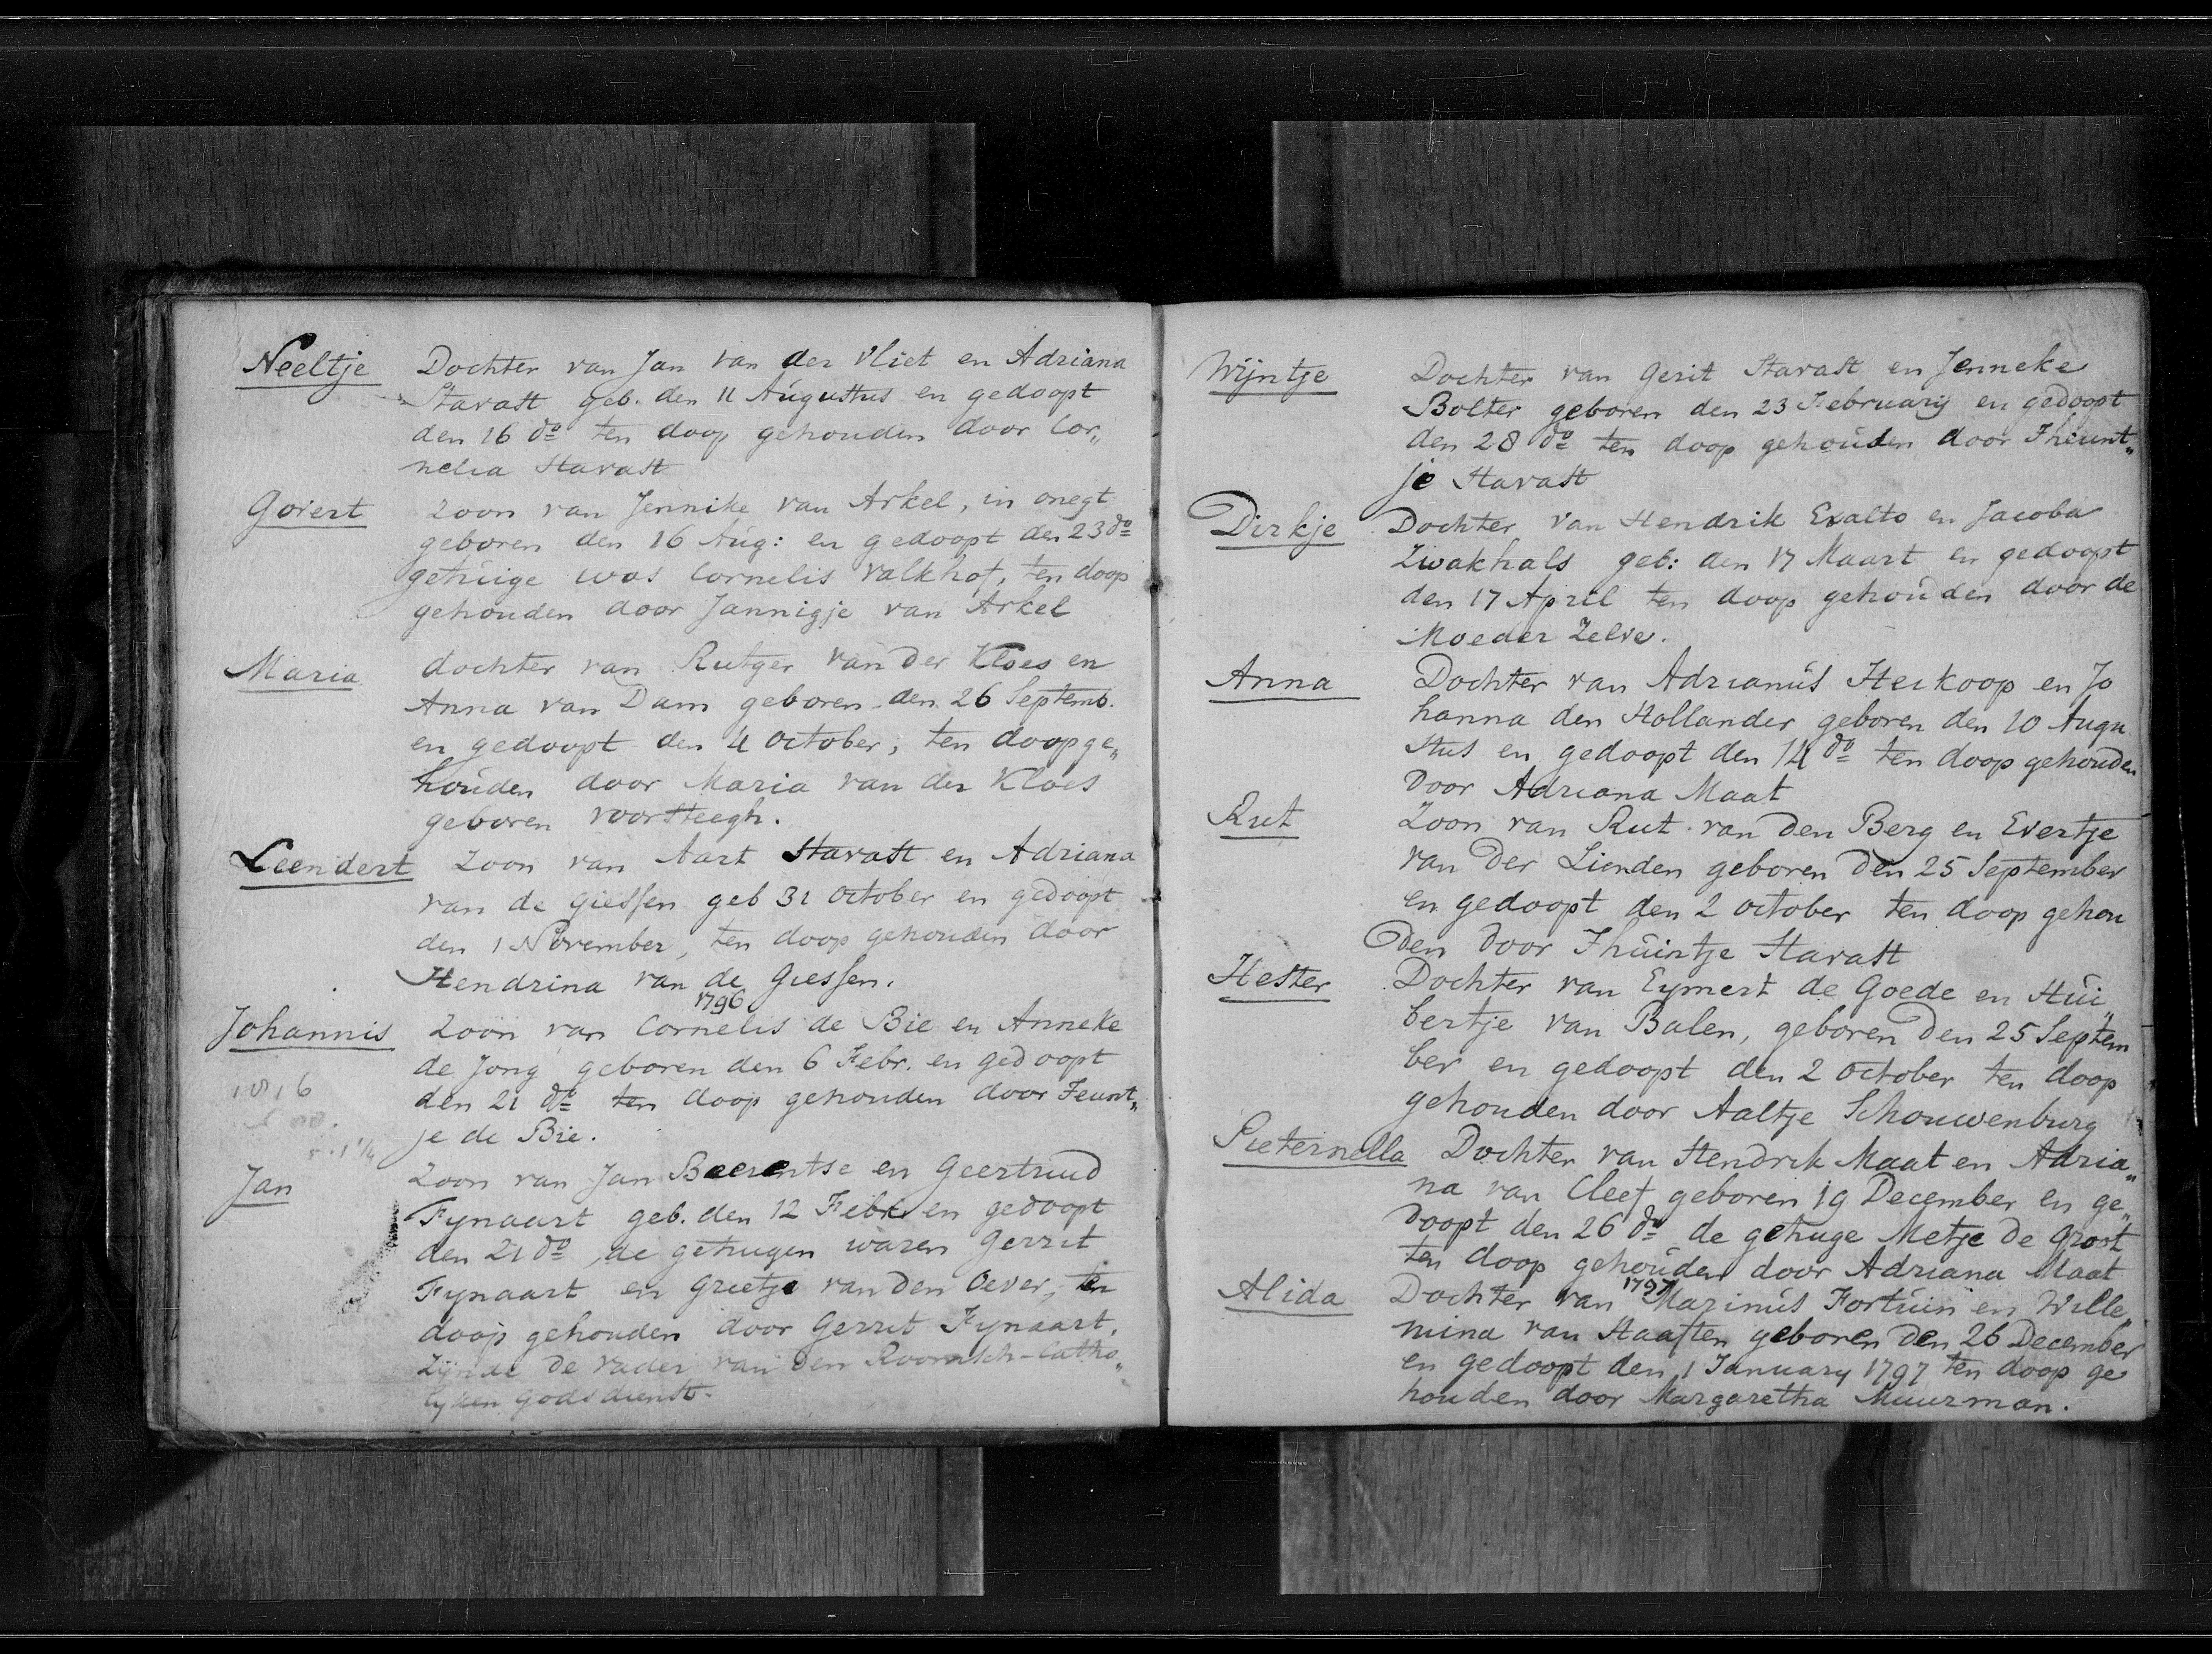 Neeltje Dochter van Jan van der Vliet en Adriana
Stavast geb. den 11 Augustus en gedoopt
den 16 do ten doop gehouden door Cor„
nelia Stavast
Govert Zoon van Jennike van Arkel, in onegt
geboren den 16 Aug: en gedoopt den 23 do
getuige was Cornelis Valkhof, ten doop
gehouden door Jannigje van Arkel
Maria dochter van Rutger van der Kloes en
Anna van Dam geboren den 26 Septemb.
en gedoopt den 4 October, ten doop ge„
houden door Maria van der Kloes
geboren voorsteegh.
Leendert Zoon van Aart Stavast en Adriana
van de Giessen geb 31 October en gedoopt
den 1 November, ten doop gehouden door
Hendrina van de Giessen.
1796
Johannis Zoon van Cornelis de Bie en Anneke
de Jong geboren den 6 Febr. en gedoopt
den 21 do ten doop gehouden door Teunt„
je de Bie.
1816
Jan Zoon van Jan Baerentse en Geertruid
Fynaart geb. den 12 Febr. en gedoopt
den 21 do, de getuigen waren Gerrit
Fynaart en Grietje van den Oever, ten
doop gehouden door Gerrit Fynaart,
Zijnde de vader van den Roomsch-Catho„
lyken Godsdienst.
Wijntje Dochter van Gerit Stavast en Jenneke
Bolter geboren den 23 February en gedoopt
den 28 do ten doop gehouden door Theunt„
je Stavast
Dirkje Dochter van Hendrik Exalto en Jacoba
Zwakhals geb: den 17 Maart en gedoopt
den 17 April ten doop gehouden door de
Moeder Zelve.
Anna Dochter van Adrianus Heikoop en Jo
hanna den Hollander geboren den 10 Augu
stus en gedoopt den 14 do ten doop gehouden
door Adriana Maat
Rut Zoon van Rut van den Berg en Evertje
van der Lienden geboren den 25 September
en gedoopt den 2 October ten doop gehou
den door Thuintje Stavast
Hester Dochter van Eymert de Goede en Hui„
bertje van Balen, geboren den 25 Septem
ber en gedoopt den 2 October ten doop
gehouden door Aaltje Schouwenburg
Pieternella Dochter van Hendrik Maat en Adria„
na van Cleef geboren 19 December en ge„
doopt den 26 do de getuge Metje de Groot
ten doop gehouden door Adriana Maat
1797
Alida Dochter van Marinus Fortuin en Wille„
mina van Haaften geboren den 26 December
en gedoopt den 1 January 1797 ten doop ge
houden door Margaretha Muurman.